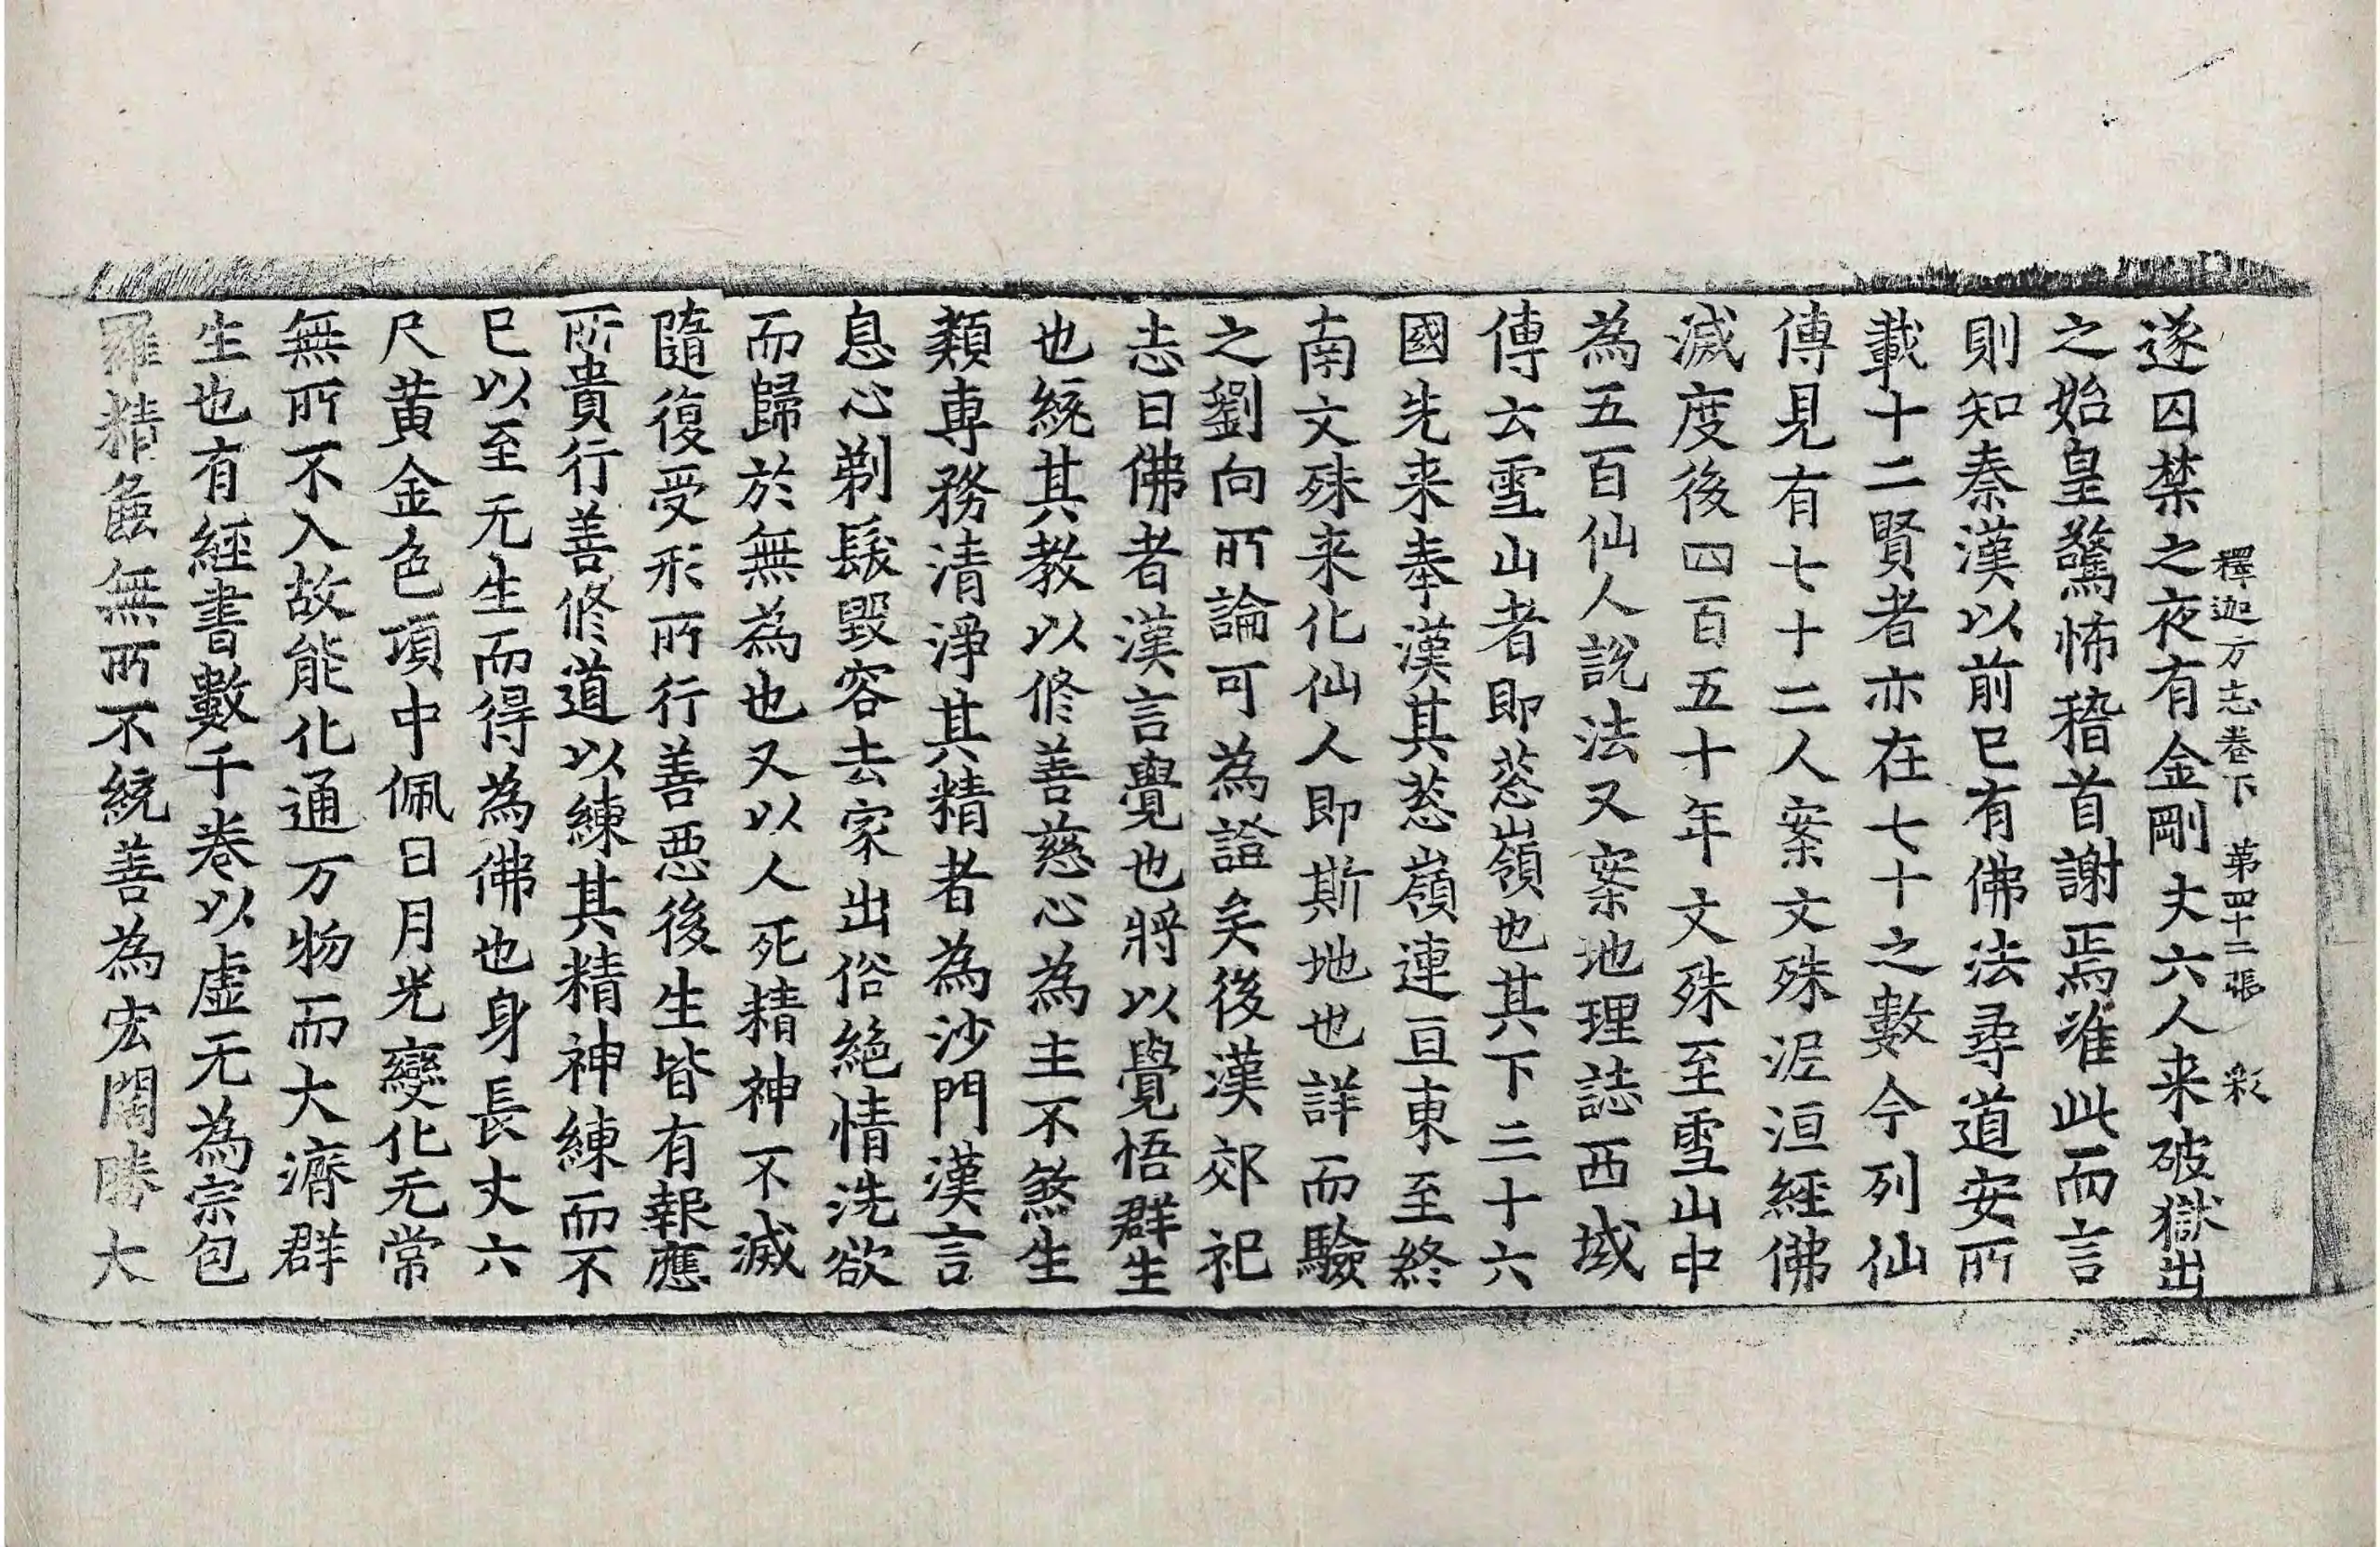 釋迦方志卷下 第四十二張 彩
遂囚禁之夜有金剛丈六人来破獄出
之始皇驚怖稽首謝焉准此而言
則知秦漢以前已有佛法尋道安所
載十二賢者亦在七十之數今列仙
傳見有七十二人案文殊涅洹經佛
滅度後四百五十年文殊至雪山中
為五百仙人說法又案地理誌西域
傳云雪山者即葱嶺也其下三十六
國先来奉漢其葱嶺連亘東至終
南文殊来化仙人即斯地也詳而驗
之劉向所論可為證矣後漢郊祀
志曰佛者漢言覺也將以覺悟群生
也統其教以修善慈心為主不煞生
類專務清淨其精者為沙門漢言
息心剃髮毀容去家出俗絕情洗欲
而歸於無為也又以人死精神不滅
隨復受形所行善惡後生皆有報應
所貴行善修道以練其精神練而不
已以至无生而得為佛也身長丈六
尺黃金色項中佩日月光變化无常
無所不入故能化通万物而大濟群
生也有經書數千卷以虛无為宗包
羅精麁無所不統善為宏闊勝大